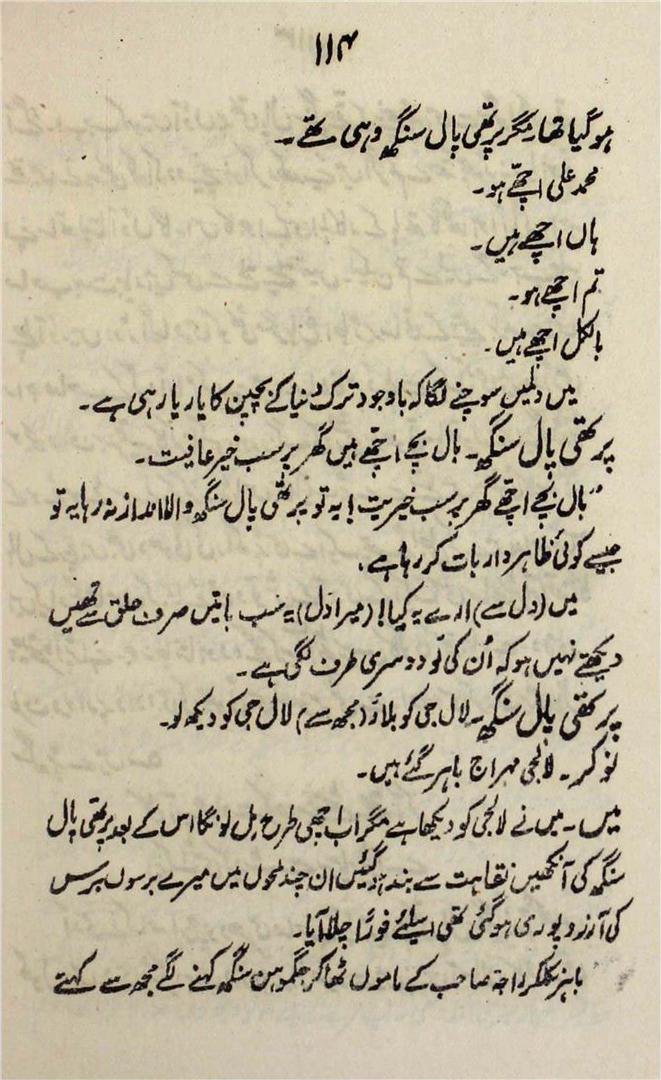 ۱۱۴
ہوگیا تھا مگر پرتھی پال سنگھ وہی تھے۔
محمد علی اچھّے ہو۔
ہاں اچھے ہیں۔
تم اچھے ہو۔
بالکل اچھے ہیں۔
میں دلمیں سوچنے لگا کہ باوجود ترک دنیا کے بچپن کا یار یار ہی ہے۔
پرتھی پال سنگھ۔ بال بچے اچھّے ہیں گھر پر سب خیر عافیت۔
"بال بچے اچھّے گھر پر سب خیریت! یہ تو پرتھی پال سنگھ والا انداز نہ رہا یہ تو
جیسے کوئی ظاہر دار بات کر رہا ہے۔
میں (دل سے) ارے یہ کیا! (میرا دل) یہ سب باتیں صرف حلق سے تھیں
دیکھتے نہیں ہو کہ اُن کی لَو دوسری طرف لگی ہے۔
پرتھی پال سنگھ۔ لال جی کو بلاؤ (مجھ سے) لال جی کو دیکھ لو۔
نوکر۔ لالجی مہراج باہر گئے ہیں۔
میں۔ میں نے لالجی کو دیکھا ہے مگر اب اچھی طرح مل لونگا اس کے بعد پرتھی پال
سنگھ کی آنکھیں نقاہت سے بند ہوگئیں ان چند لمحوں میں میرے برسوں برس
کی آرزو پوری ہوگئی تھی اسلئے فوراً چلا آیا۔
باہر نکلکر راجہ صاحب کے ماموں ٹھاکر جگموہن سنگھ کہنے لگے مجھ سے کہتے